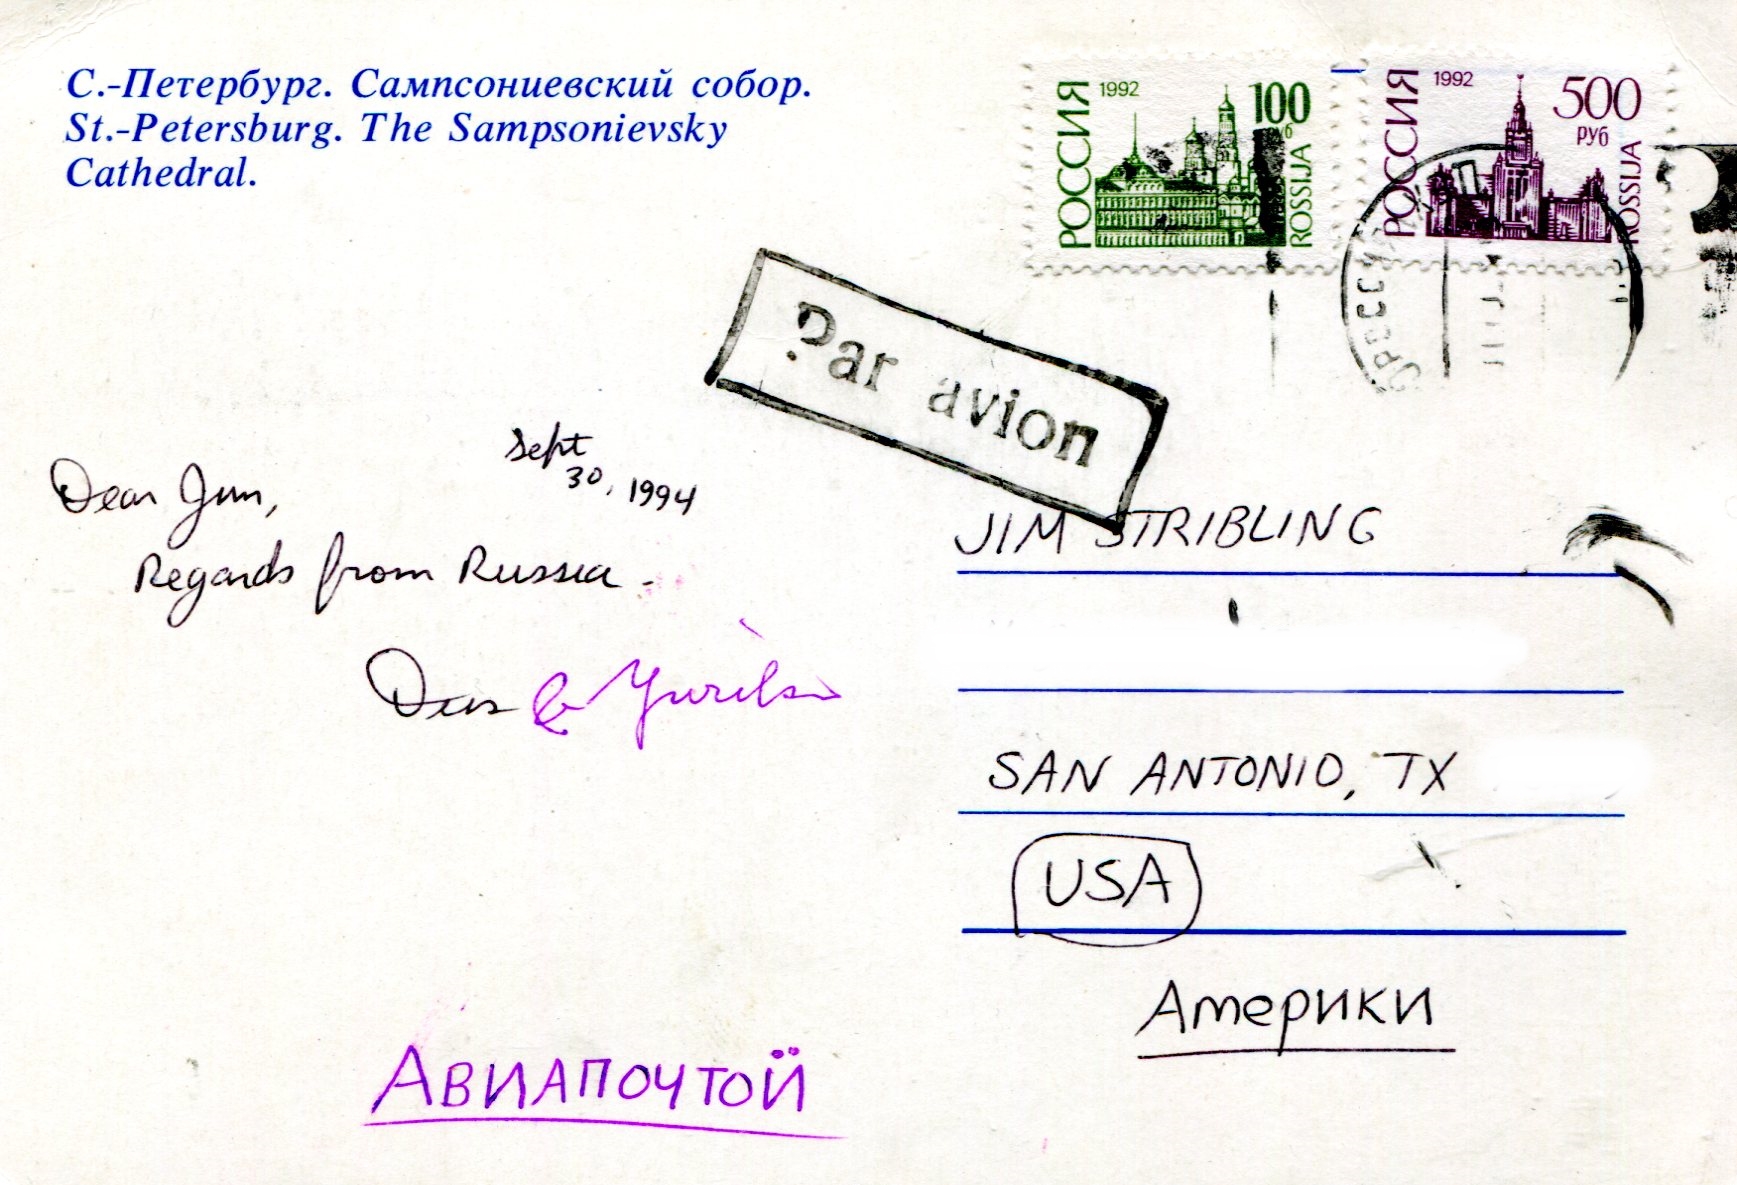 С.-Петербург. Сампсониевский собор.
St.-Petersburg. The Sampsonievsky
Cathedral.
РОССИЯ 1992 100 ROSSIJA
РОССИЯ 1992 500 РУБ ROSSIJA
Par avion
Sept
30, 1994
Dear Jim,
Regards from Russia.
JIM STRIBLING
SAN ANTONIO, TX
USA
Америки
Авиапочтой